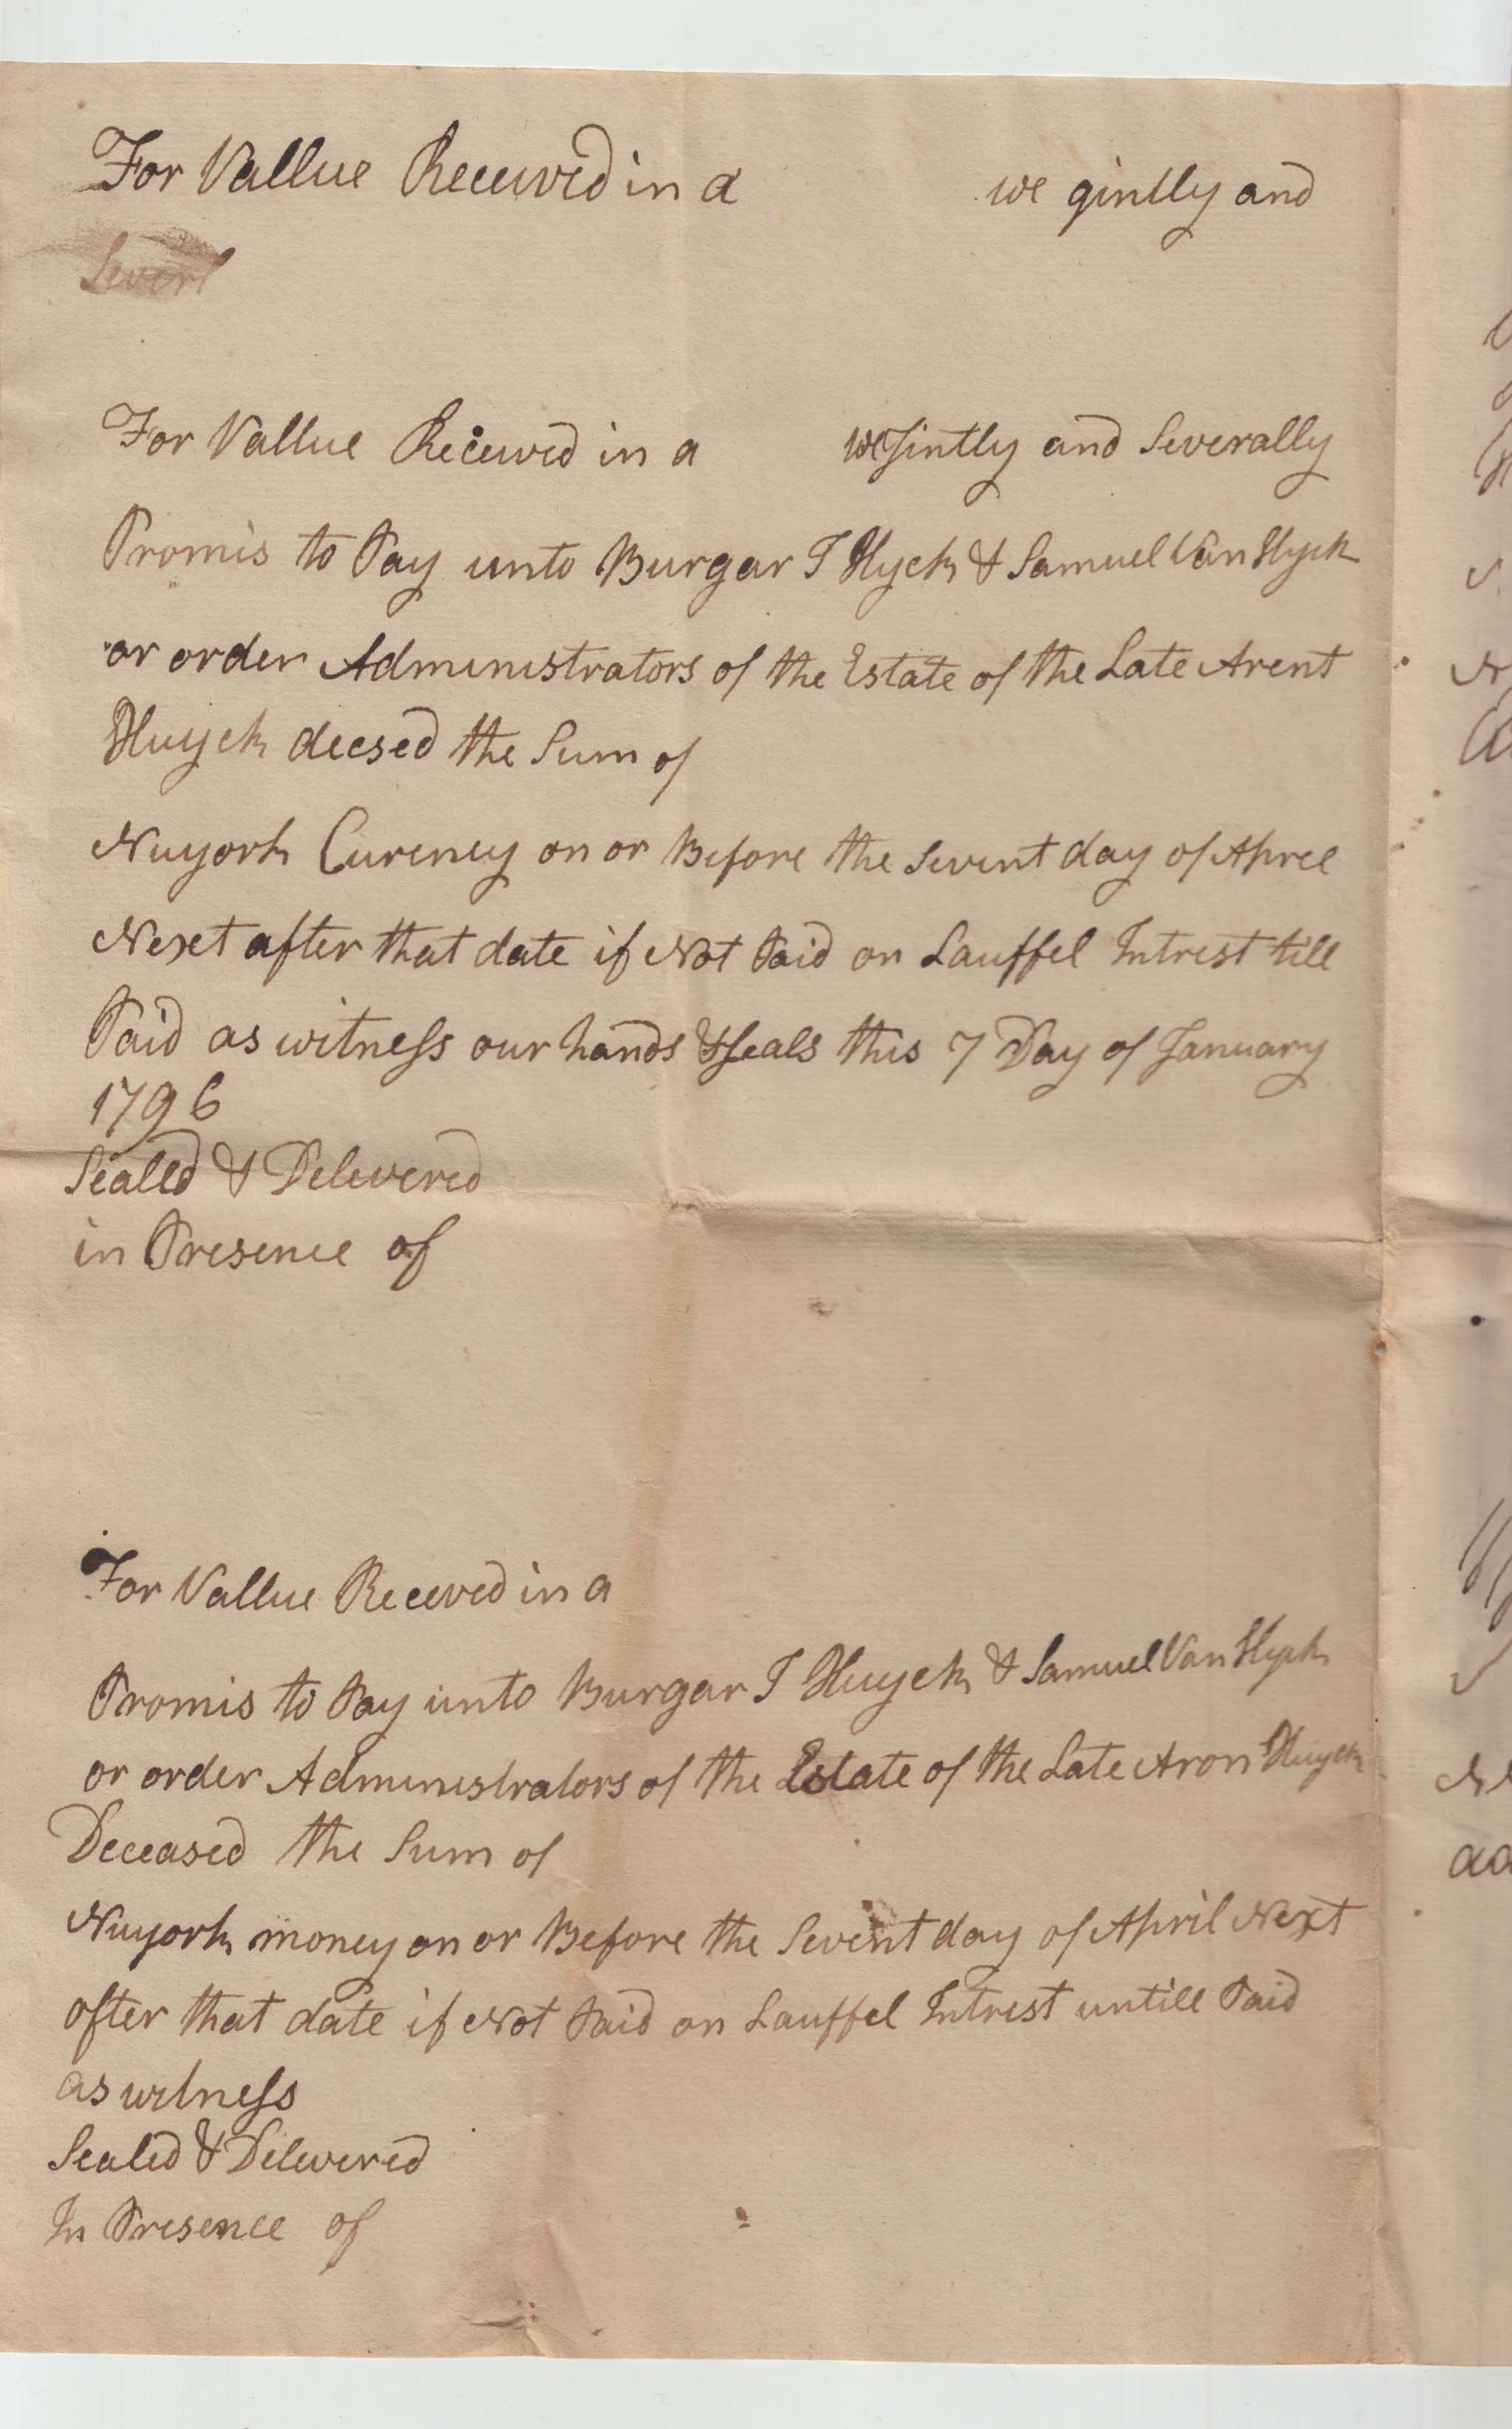 For Vallue Received in a we gintly and
Severl
For Vallue Received in a we Jintly and Severally
Promis to Pay unto Burgar T Hyck & Samuel Van Hyck
or order Administrators of the Estate of the Late Arent
Huyck decsed the Sum of
Nuyork Cureney on or Before the Sevent day of Aprel
Next after that date if Not Paid on Lauffel Intrest till
Paid as witness our hands & Seals this 7 Day of January
1796
Sealed & Delivered
in Presence of
For Vallue Receved in a
Promis to Pay unto Burgar T Huyck & Samuel Van Hyck
or order Administrators of the Estate of the Late Aron Huyck
Deceased the Sum of
Nuyork money on or Before the Sevent day of April Next
after that date if Not Paid on Lauffel Intrest untill Paid
as witness
Sealed & Delivered
In Presence of